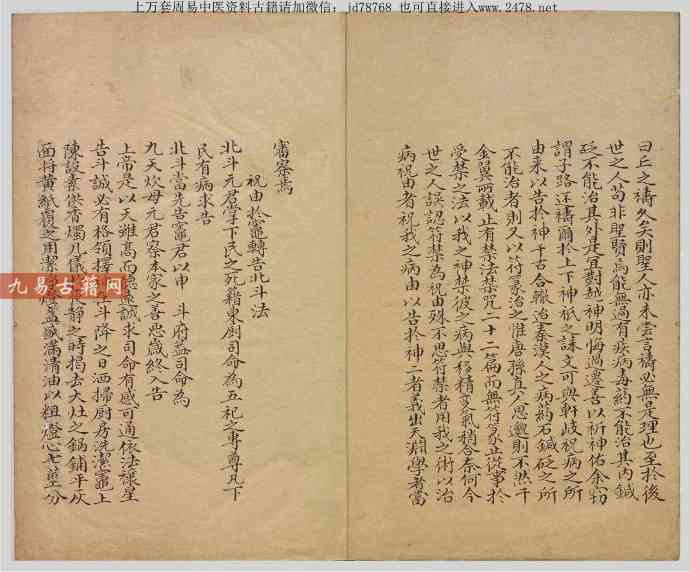 上万套周易中医资料古籍请加微信：jd78768 也可直接进入www.2478.net
曰丘之禱久矣則聖人亦未嘗言禱必無是理也至於後
世之人苟非聖賢焉能無過有疾病毒藥不能治其內鍼
砭不能治其外是宜對越神明悔過遷善以祈神佑余竊
謂子路還禱爾於上下神祇之誄文可與軒岐祝病之所
由來以告於神千古合轍迨秦漢人之病藥石鍼砭之所
不能治者則又以符篆治之惟唐孫真人思邈則不然千
金翼所載止有禁法禁咒二十二篇而無符篆止從事於
受禁之法以我之神禁彼之病與移精變氣稍合奈何今
世之人誤認符禁為祝由殊不思符禁者用我之術以治
病祝由者祝我之病由以告於神二者義出天淵學者當
審察焉
祝由於竈轉告北斗法
北斗元君掌下民之死籍東廚司命為五祀之專尊凡下
民有病求告
北斗當先告竈君以申 斗府益司命為
九天炊母元君察本家之善惡歲終入告
上帝是以天雖高而聽遠誠求司命有感可通依法禳星
告斗誠必有格領擇 斗降之日洒掃廚房洗潔竈上
陳設素供香燭凡儀 靜之時揭去大灶之鍋鋪平灰
面将黃紙覆之用潔 燈盞貳滿清油以粗燈心七莖分
九易古籍网